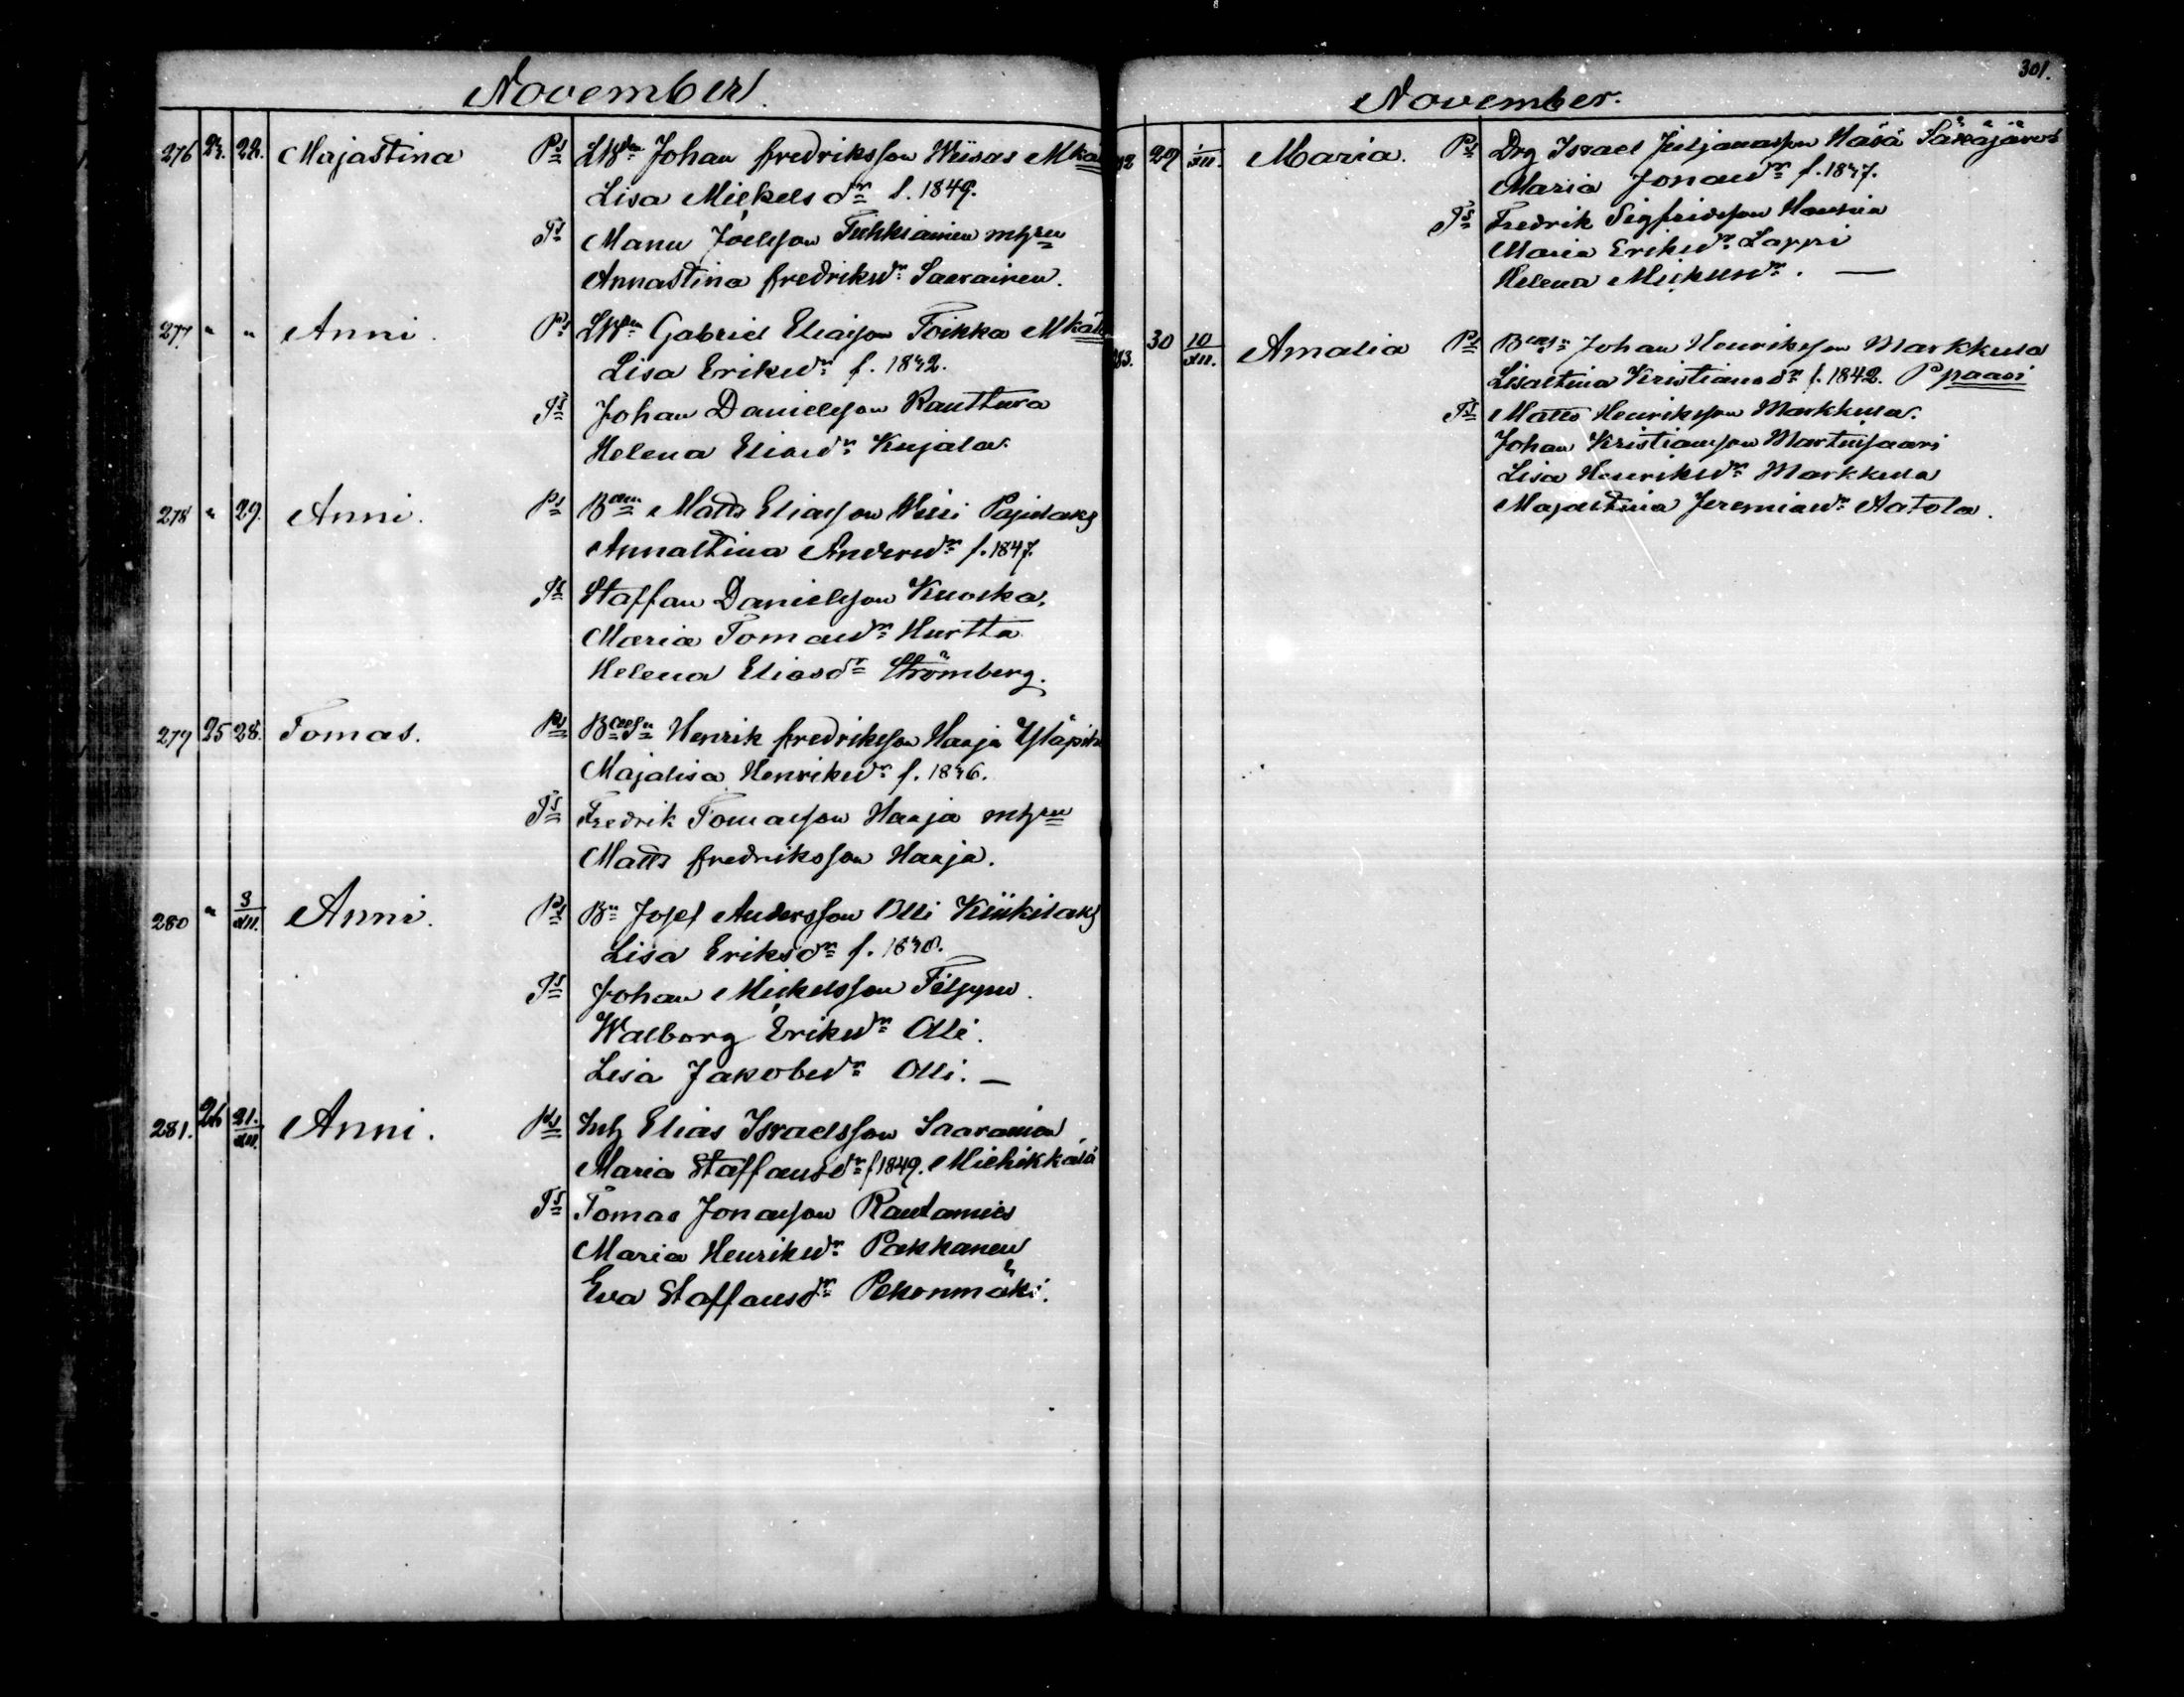 November.
276 23. 28. Majastina Ps Johan fredriksson Wiisas
Lisa Mickelsdr f. 1849.
Ts Manu Joelsson Tuhkiainen mhsu
Annastina fredriksdr Saarainen.
277. " " Anni. Ps Gabriel Eliasson Toikka
Lisa Eriksdr f. 1842.
Ts Johan Danielsson Ranttura
Helena Eliasdr Kujala.
278 " 29. Anni. Ps Matts Eliasson
Annastina Andersdr f. 1847.
Ts Staffan Danielsson Kuoska,
Maria Tomasdr Hurtta
Helena Eliasdr Strömberg.
279 25 28. Tomas. Ps Henrik fredriksson Haaja
Majalisa Henriksdr f. 1846.
Ts Fredrik Tomasson Haaja mhsu
Matts fredriksson Haaja.
280 " 3/XII. Anni. Ps Bn Josef Andersson Olli
Lisa Eriksdr f.
Ts Johan Mickelsson Filppu.
Walborg Eriksdr Olli.
Lisa Jakobsdr Olli. —
281. 26 21./XII. Anni. Ps Inh Elias Israelsson Saarainen,
Maria Staffansdr f 1849. Miehikkälä
Ts Tomas Jonasson Rautamies
Maria Henriksdr Pakkanen
Eva Staffansdr Pekonmäki.
301.
November.
29 1/XII. Maria. Ps Drg Israel Juljanasson Häsä Säkäjärvi
Maria Jonasdr f. 1847.
Ts Fredrik Sigfridsson
Maria Eriksdr Lappi
Helena Mickelsdr. —
30 10/XII. Amalia Ps Johan Henriksson Markkula
Lisastina Kristiansdr f. 1842. Ppaasi
Ts Matts Henriksson Markkula.
Johan Kristiansson Martinsaari
Lisa Henriksdr Markkula
Majastina Jeremiasdr Aatola.